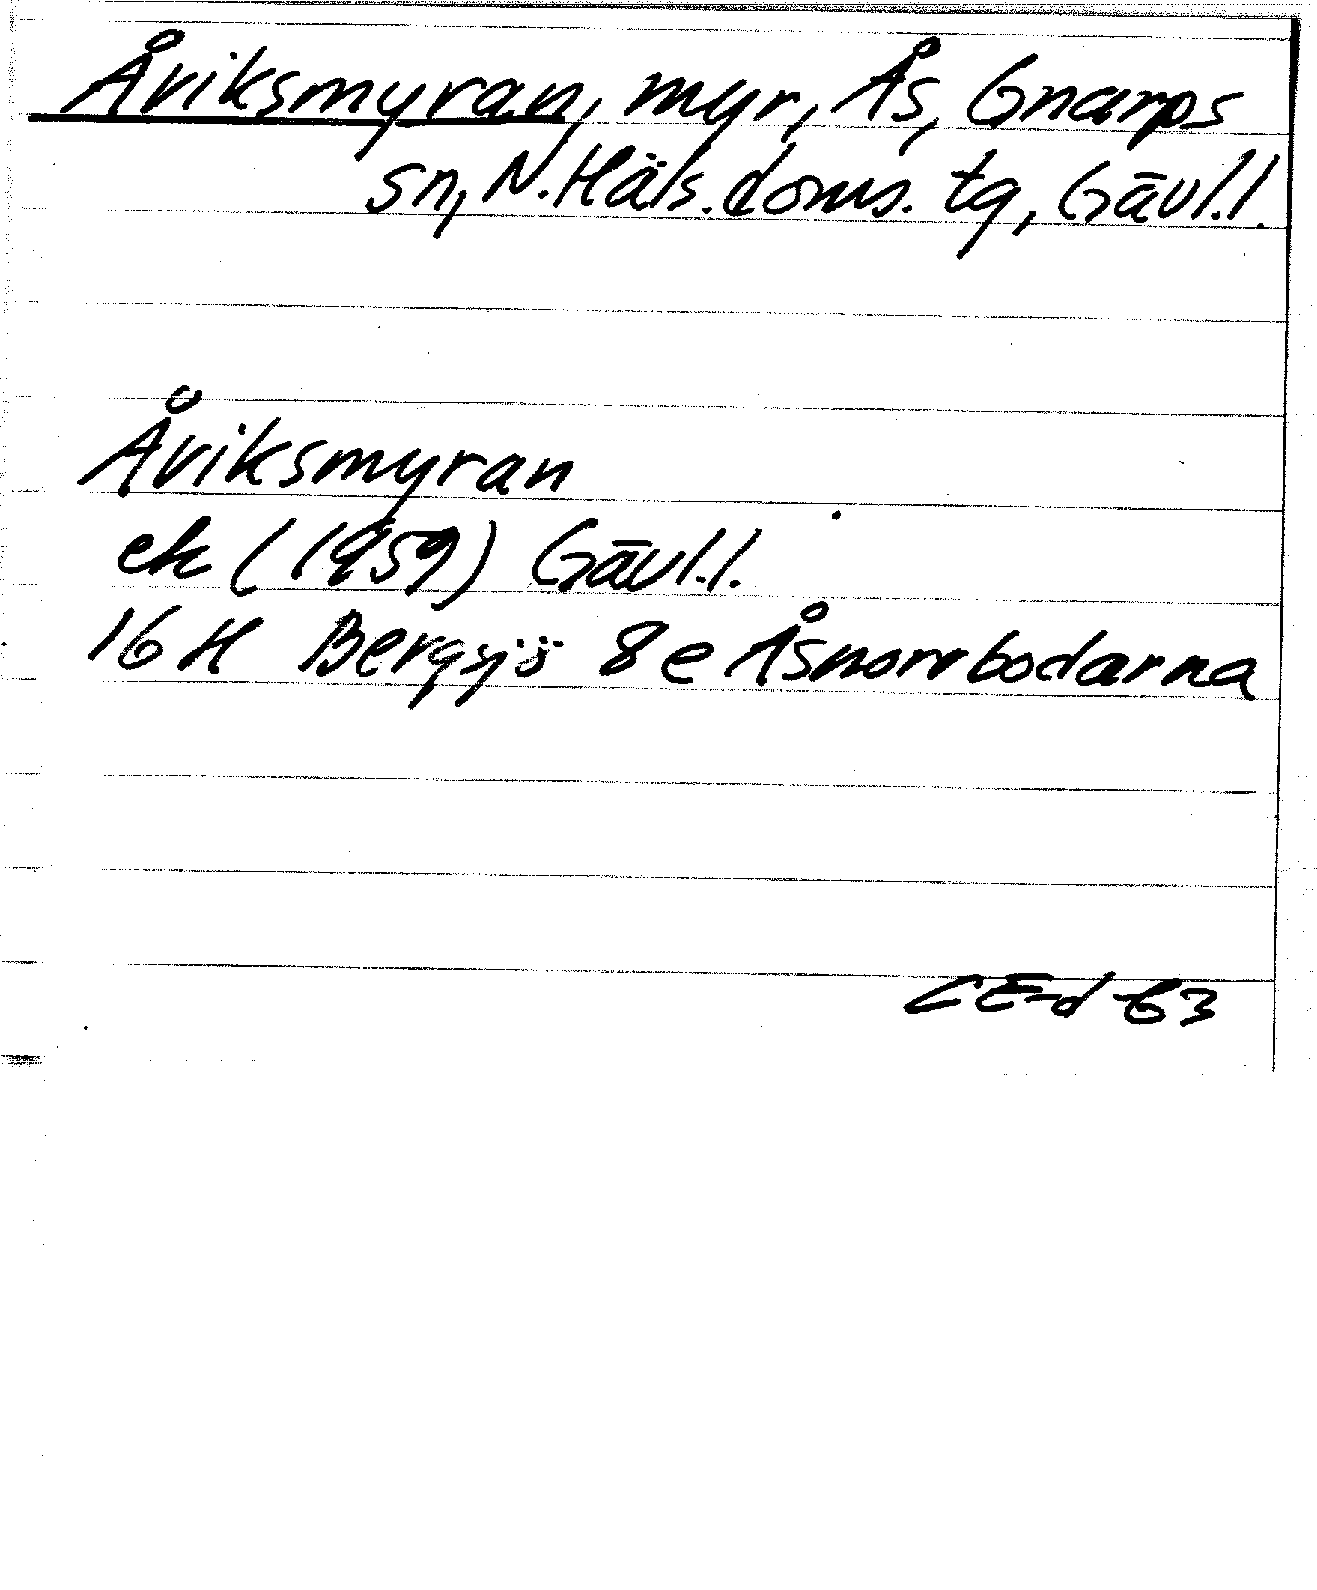 Åviksmyran, myr, Ås, Gnarps
sn, N. Häls. doms. tg, Gävl.l.
Åviksmyran
ek (1959) Gävl.l.
16 H Bergsjö 8 e Åsnorrbodarna
CE-d 63